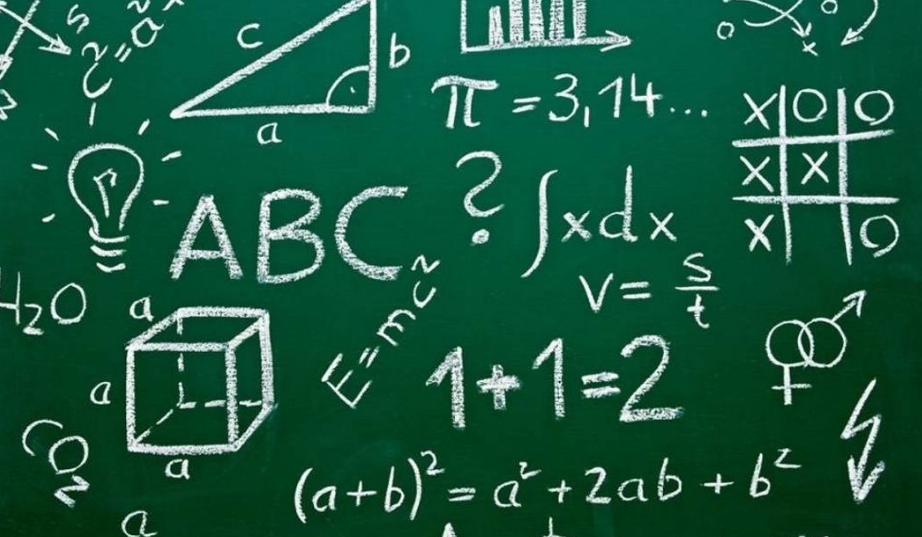 s
c² = a²
c
b
a
π = 3,14...
X O O
X X
X O
ABC
?
∫xdx
v = s/t
H₂O
a
a
a
E=mc²
1+1=2
CO₂
(a+b)² = a² + 2ab + b²
a